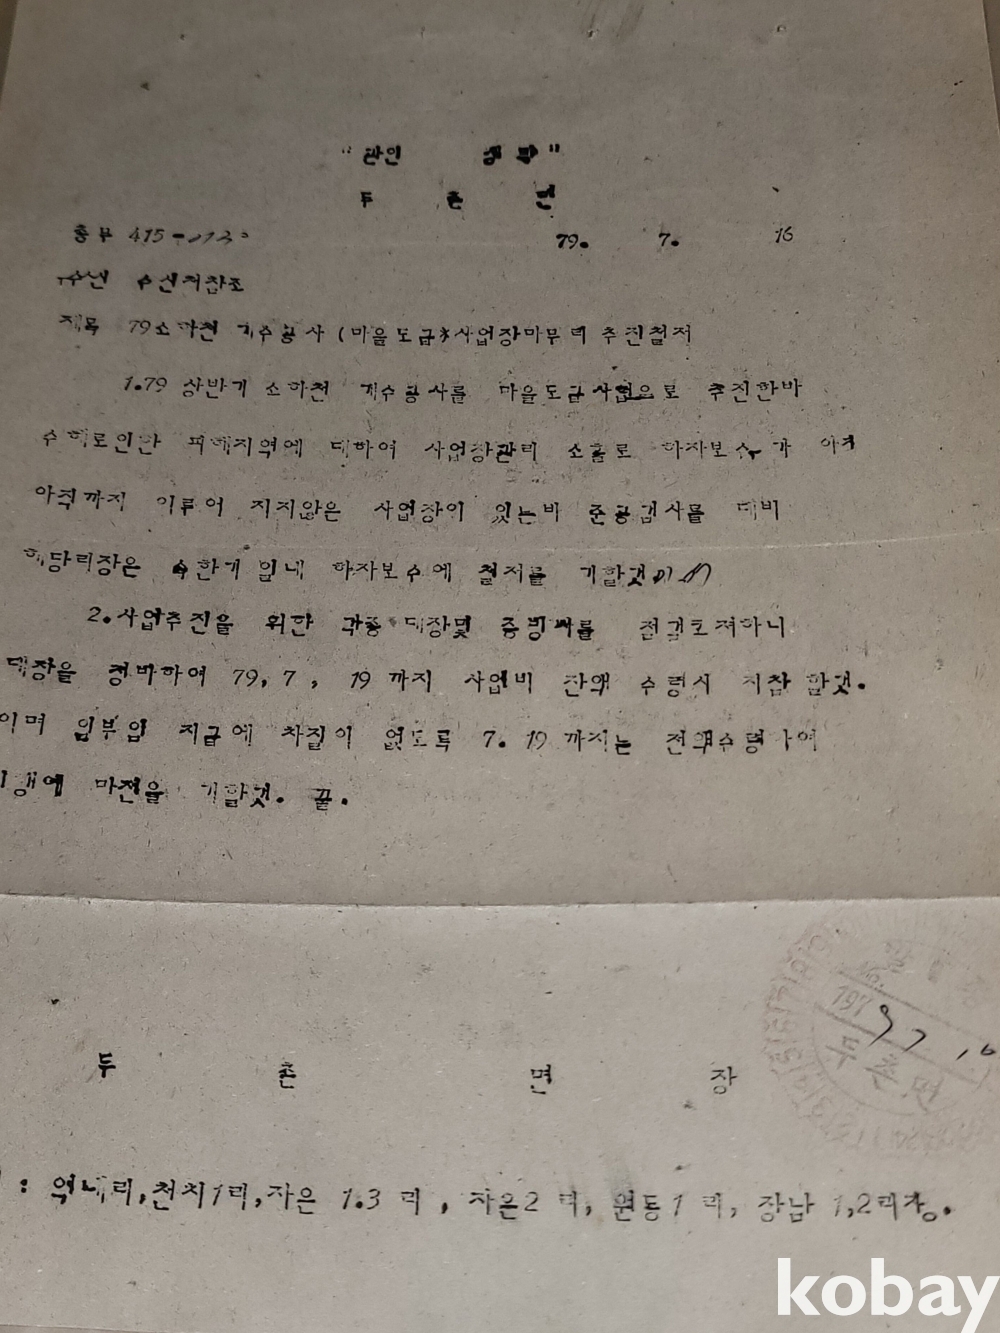 "관인 생략"
두 촌 면
총무 415- 79. 7. 16
수신 수신처참조
제목 79소하천 개수공사 (마을도급)사업장마무리 추진철저
1.79 상반기 소하천 개수공사를 마을도급사업으로 추진한바
수해로인한 피해지역에 대하여 사업장관리 소홀로 하자보수가 아직
아직까지 이루어 지지않은 사업장이 있는바 준공검사를 대비
해당리장은 수한기 일내 하자보수에 철저를 기할것이며
2.사업추진을 위한 각종 대장및 증빙서를 점검코져하니
대장을 정비하여 79, 7, 19 까지 사업비 잔액 수령시 지참 할것.
이며 임부임 지급에 차질이 없도록 7. 19 까지는 전액수령하여
만전을 기할것. 끝.
두 촌 면 장
197 9 7 16
두촌면
: 역내리,천치1리,자은 1.3 리, 자은2 리, 원동1 리, 장남 1,2리장.
kobay